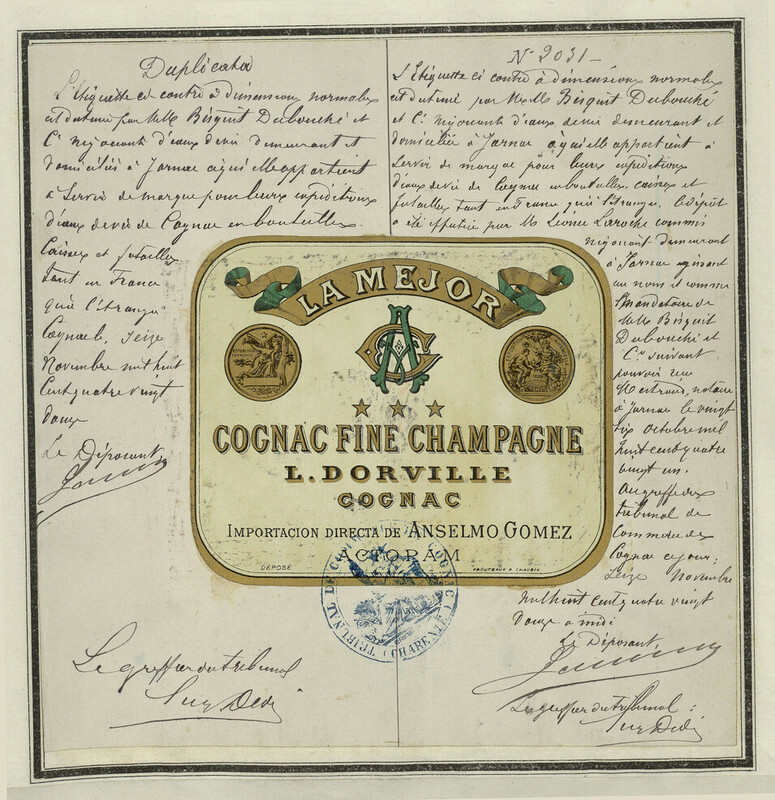 Duplicata
L'Etiquette ci contre à dimensions normales
est detenue par MM. Bisquit Dubouché et
Cie négociants d'eaux devie demeurant et
domiciliés à Jarnac à qui elle appartient
à Servir de marque pour leurs expéditions
d'eaux devie de Cognac en bouteilles
Caisses et futailles
tant en France
qu'à l'étranger
Cognac le Seize
Novembre mil huit
Cent quatre vingt
douze
Le Déposant
Le greffier du tribunal
No 2031
L'Etiquette ci contre à dimensions normales
est detenue par MM. Bisquit Dubouché
et Cie négociants d'eaux devie demeurant et
domiciliés à Jarnac à qui elle appartient à
Servir de marque pour leurs expéditions
d'eaux devie de Cognac en bouteilles, caisses et
futailles tant en France qu'à l'étranger. Le dépôt
a été effectué par M. Léonce Laroche commis
négociant demeurant
à Jarnac agissant
au nom et comme
mandataire de
MM. Bisquit
Dubouché et
Cie suivant
pouvoir reçu
notaire
à Jarnac le vingt
six octobre mil
huit cent quatre
vingt un.
Au greffe du
tribunal de
Commerce de
Cognac ce jour
Seize Novembre
mil huit cent quatre vingt
douze à midi
Le Déposant
Le greffier du tribunal:
LA MEJOR
COGNAC FINE CHAMPAGNE
L. DORVILLE
COGNAC
IMPORTACION DIRECTA DE ANSELMO GOMEZ
ACTOPAM
DÉPOSÉ
PROUTEAUX & CHAUVIN
TRIBUNAL DE COMMERCE COGNAC (CHARENTE)